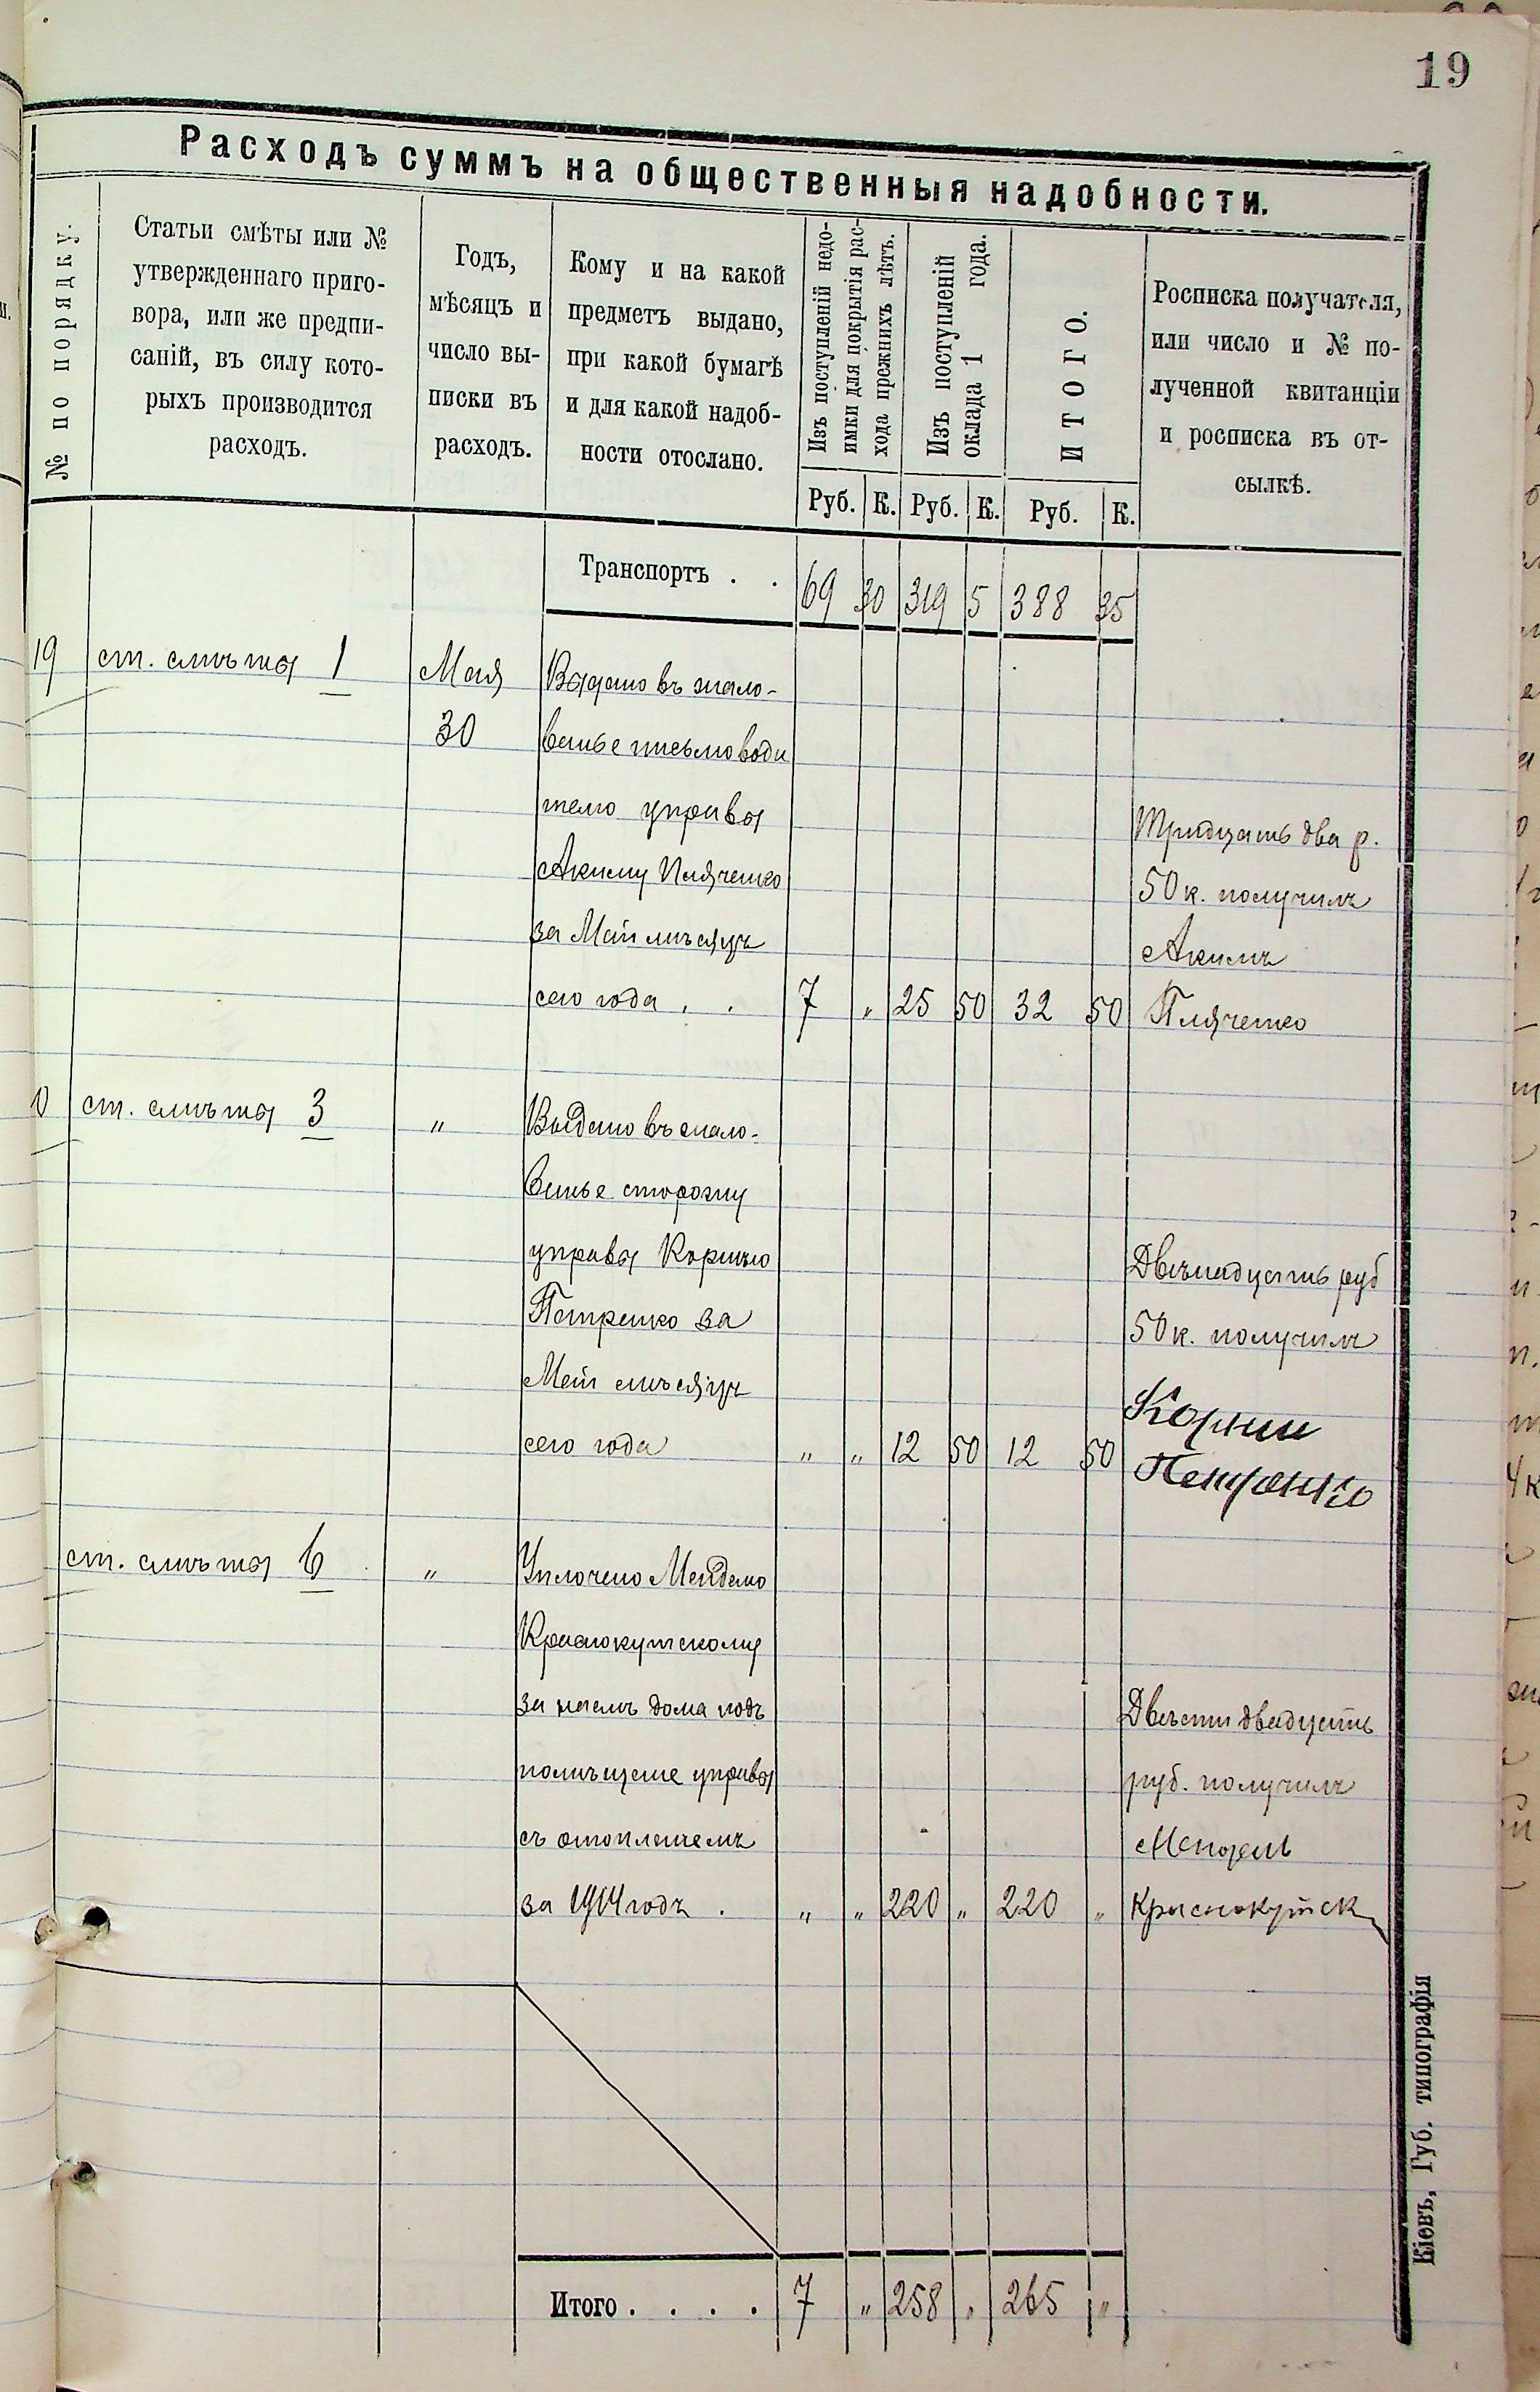 19
Расходъ суммъ на общественныя надобности.
№ по порядку.
Статьи смѣты или №
утвержденнаго приго-
вора, или же предпи-
саній, въ силу кото-
рыхъ производится
расходъ.
Годъ,
мѣсяцъ и
число вы-
писки въ
расходъ.
Кому и на какой
предметъ выдано,
при какой бумагѣ
и для какой надоб-
ности отослано.
Изъ поступленій недо-
имки для покрытія рас-
хода прежнихъ лѣтъ.
Изъ поступленій
оклада 1 года.
ИТОГО.
Росписка получателя,
или число и № по-
лученной квитанціи
и росписка въ от-
сылкѣ.
Руб. К. Руб. К. Руб. К.
Транспортъ . . 69 30 319 5 388 35
19 ст. смѣты 1 Мая Выдано въ жало-
30 ванье письмоводи
телю управы
Тридцать два р.
Акиму
50 к. получилъ
за Май мѣсяцъ
Акимъ
сего года . . 7 „ 25 50 32 50
0 ст. смѣты 3 „ Выдано въ жало-
ванье сторожу
управы Корнію
Двѣнадцать руб
Петренко за
50 к. получилъ
Май мѣсяцъ
Корній
сего года „ „ 12 50 12 50
Петренко
ст. смѣты 6 „ Уплочено Менделю
Краснокутскому
за наемъ дома подъ
Двѣсти двадцать
помѣщеніе управы
руб. получилъ
съ отопленіемъ
Мендель
за 1914 годъ . „ „ 220 „ 220 „
Краснокутск
Итого . . . . 7 „ 258 „ 265 „
Кіевъ, Губ. типографія